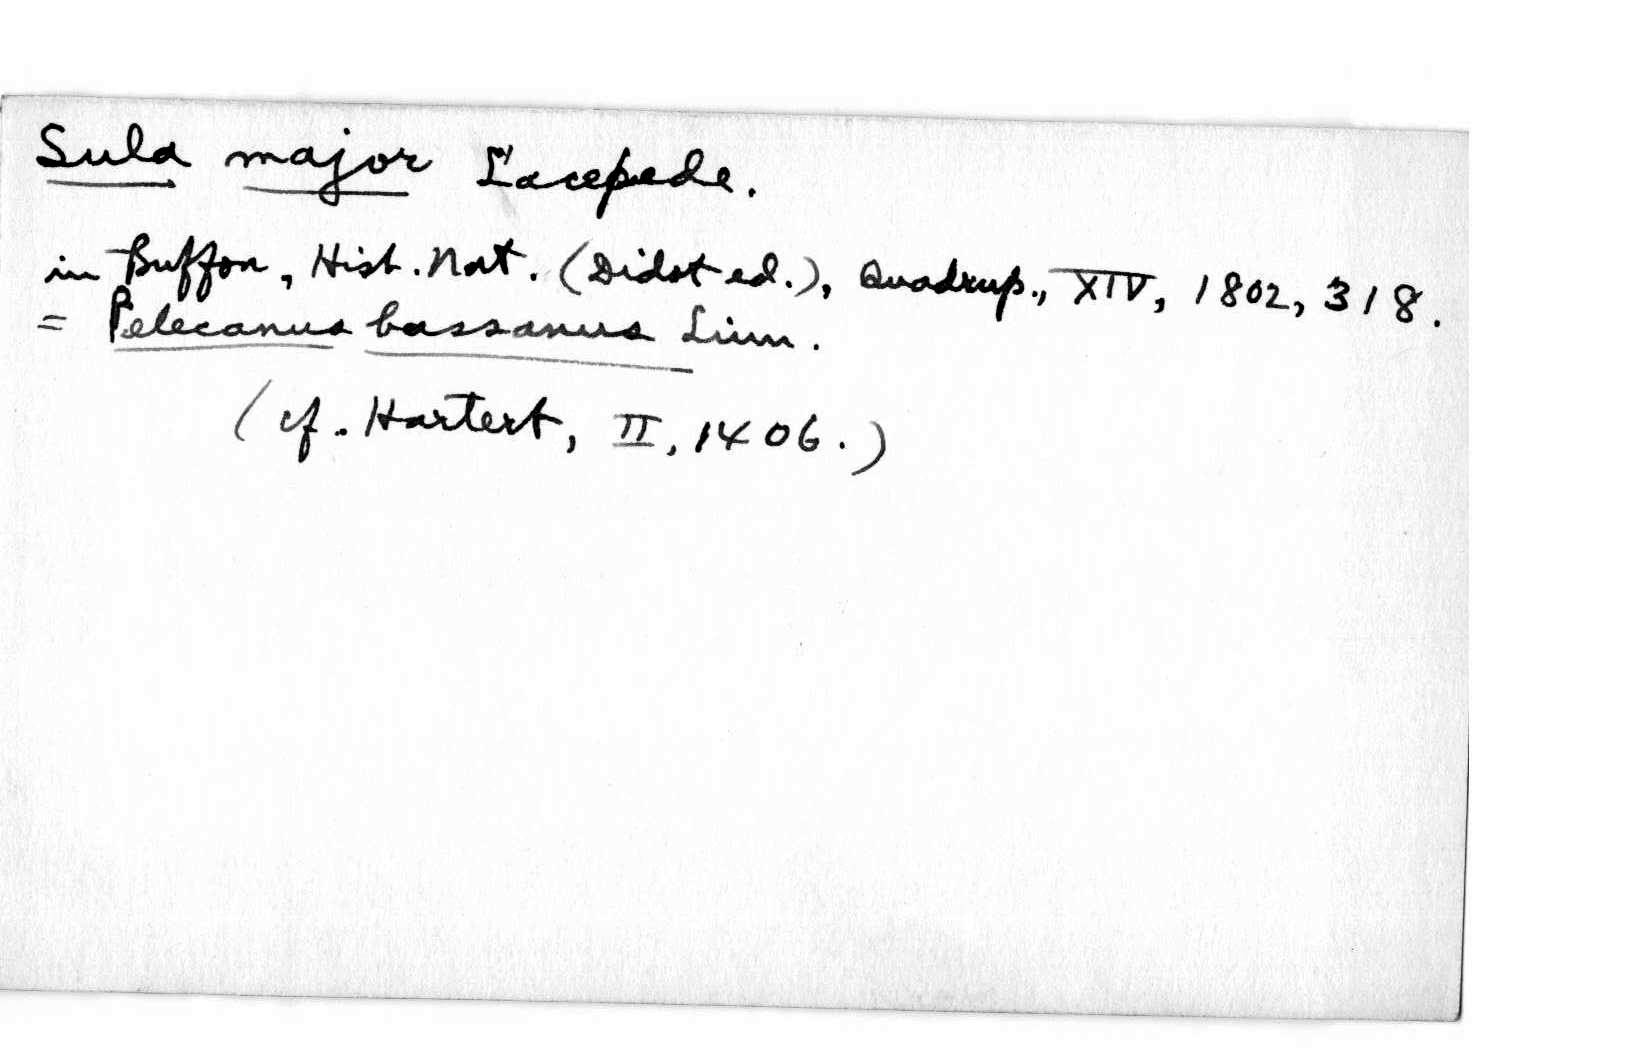 Sula major Lacepede.
in Buffon, Hist. Nat. (Didot ed.), Quadrup., XIV, 1802, 318.
= Pelecanus bassanus Linn.
(cf. Hartert, II, 1406.)